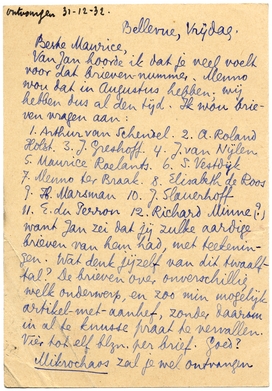 ontvangen 31-12-32.
Bellevue, Vrijdag.
Beste Maurice,
Van Jan hoorde ik dat je veel voelt
voor dat brieven-nummer. Menno
wou dat in Augustus hebben; wij
hebben dus al den tijd. Ik wou brie-
ven vragen aan:
1. Arthur van Schendel. 2. A. Roland
Holst. 3. J. Greshoff. 4. J. van Nijlen.
5 Maurice Roelants. 6. S. Vestdijk
7. Menno ter Braak. 8. Elisabeth de Roos
9. H. Marsman 10. J. Slauerhoff
11. E. du Perron 12. Richard Minne (?)
want Jan zei dat jij zulke aardige
brieven van hem had, met teekenin-
gen. Wat denk jijzelf van dit twaalf-
tal? De brieven over onverschillig
welk onderwerp, en zoo min mogelijk
artikel-met-aanhef, zonder daarom
in al te knusse praat te vervallen.
Vier tot elf blzn. per brief. Goed?
Mikrochaos zal je wel ontvangen